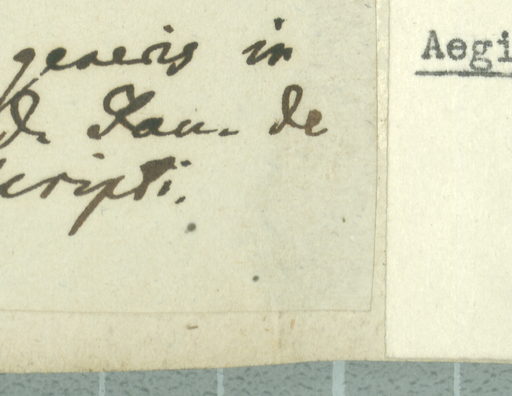 generis in
d. Lau. de
scripti.
Aegi